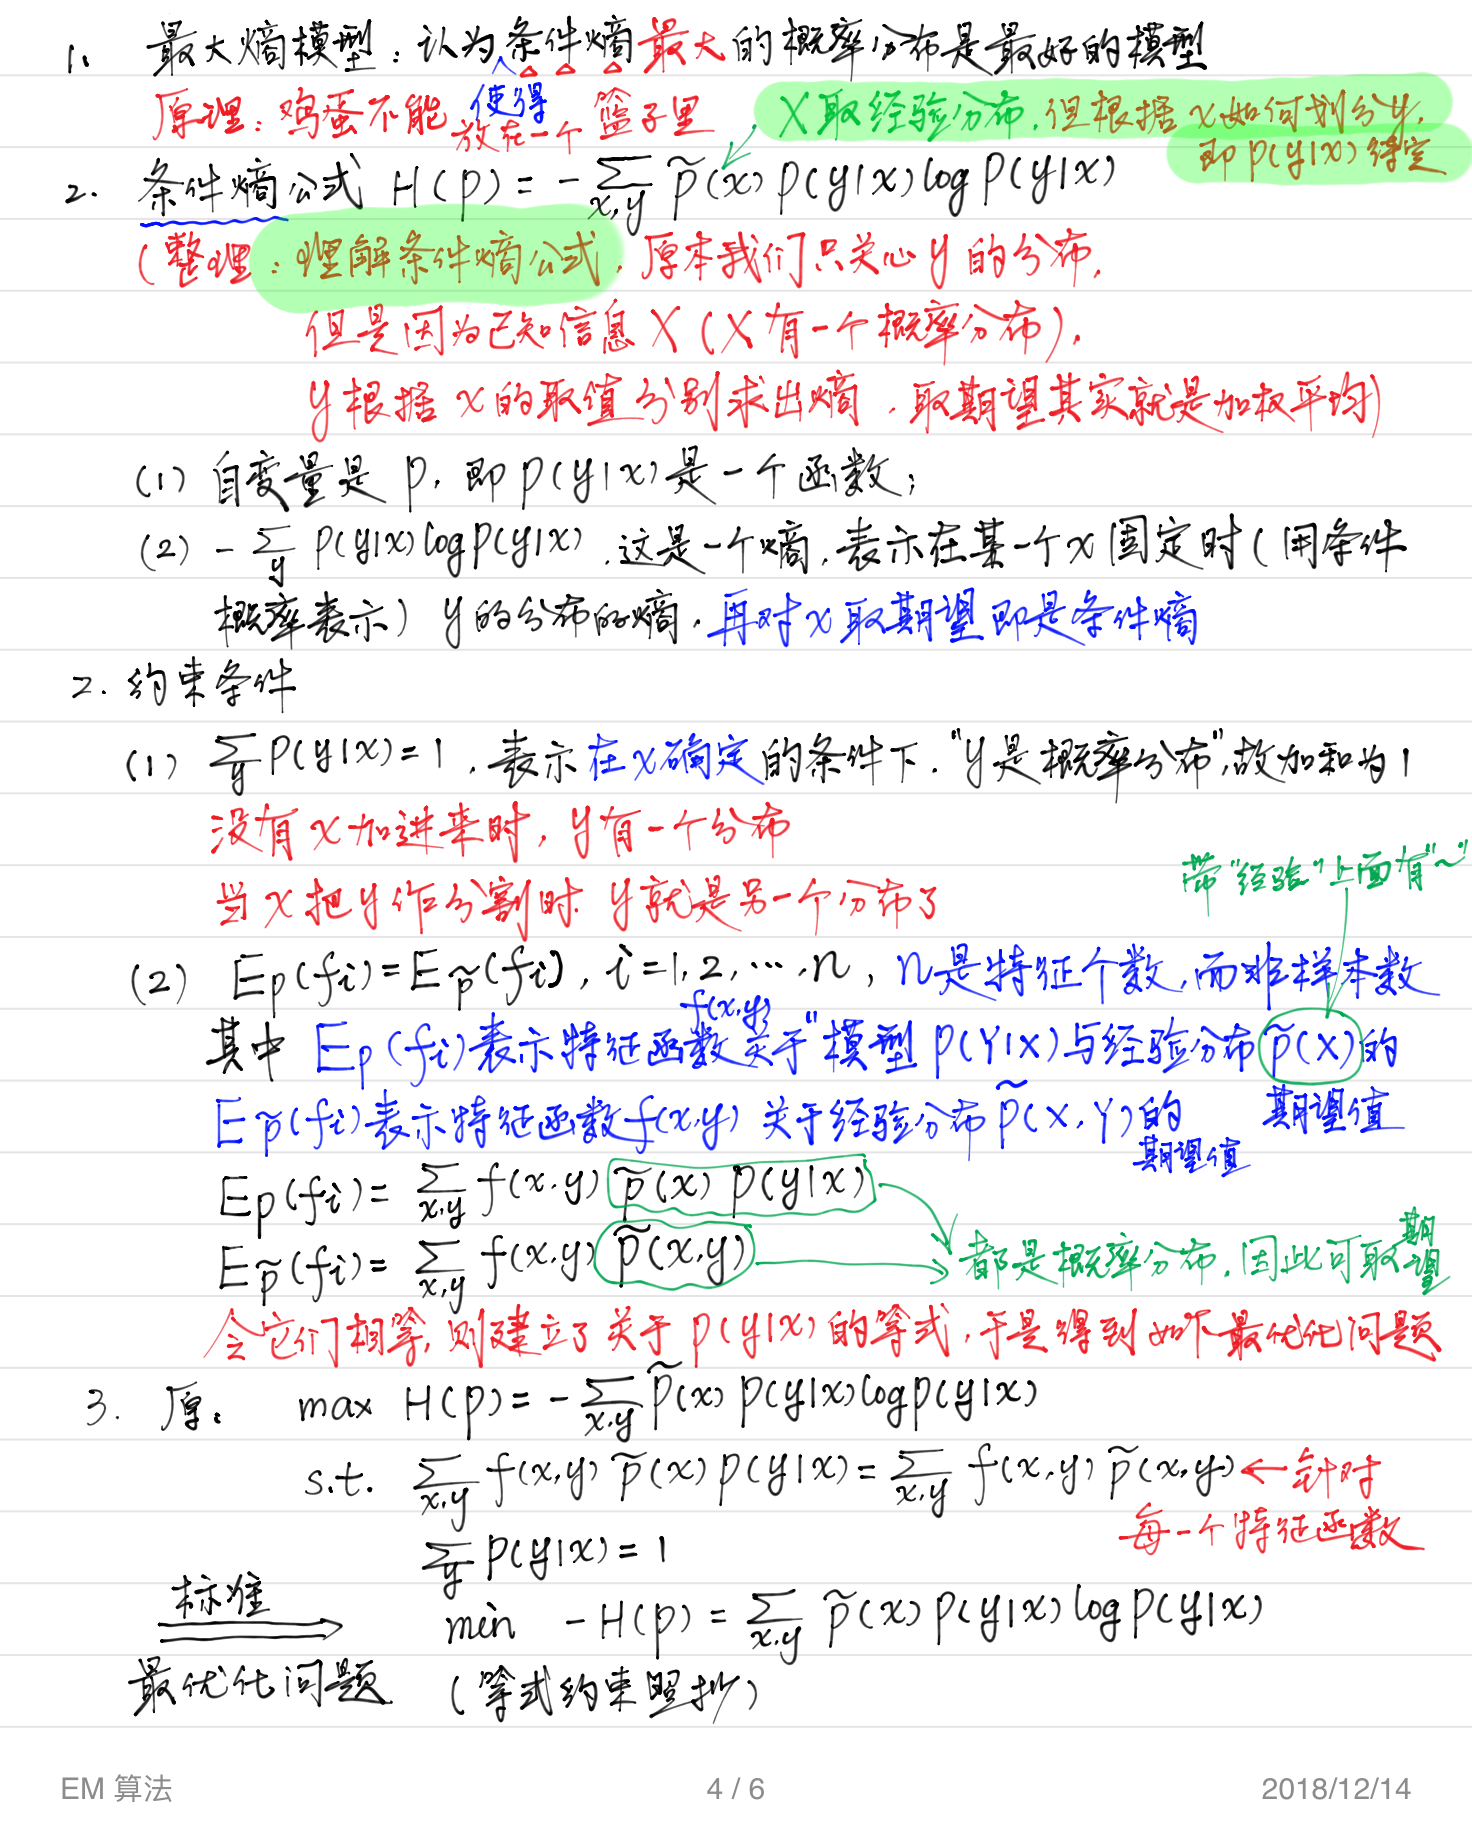 1. 最大熵模型：认为使得条件熵最大的概率分布是最好的模型
原理：鸡蛋不能放在一个篮子里
X取经验分布，但根据x如何划分y，
即P(y|x)待定
2. 条件熵公式 H(p) = -∑x,y p̃(x) p(y|x) log p(y|x)
(整理：理解条件熵公式，原本我们只关心y的分布，
但是因为已知信息X(X有一个概率分布)，
y根据x的取值分别求出熵，取期望其实就是加权平均)
(1) 自变量是p，即p(y|x)是一个函数；
(2) -∑y p(y|x) log p(y|x)，这是一个熵，表示在某一个x固定时(用条件
概率表示) y的分布的熵，再对x取期望即是条件熵
2. 约束条件
(1) ∑y p(y|x)=1，表示在x确定的条件下，"y是概率分布"，故加和为1
没有x加进来时，y有一个分布
当x把y作分割时，y就是另一个分布了
带"经验"上面有"~"
(2) Ep(fi)=Ep̃(fi)，i=1,2,…,n，n是特征个数，而非样本数
其中 Ep(fi)表示特征函数f(x,y)关于"模型p(Y|X)与经验分布p̃(X)的
期望值
Ep̃(fi)表示特征函数f(x,y)关于经验分布p̃(X,Y)的
期望值
Ep(fi)= ∑x,y f(x,y) p̃(x) p(y|x)
Ep̃(fi)= ∑x,y f(x,y) p̃(x,y)
都是概率分布，因此可取期望
令它们相等，则建立了关于p(y|x)的等式，于是得到如下最优化问题
3. 原： max H(p) = -∑x,y p̃(x) p(y|x) log p(y|x)
s.t. ∑x,y f(x,y) p̃(x) p(y|x) = ∑x,y f(x,y) p̃(x,y) ← 针对
每一个特征函数
∑y p(y|x) = 1
标准
min -H(p) = ∑x,y p̃(x) p(y|x) log p(y|x)
最优化问题 (等式约束照抄)
EM 算法 4 / 6 2018/12/14